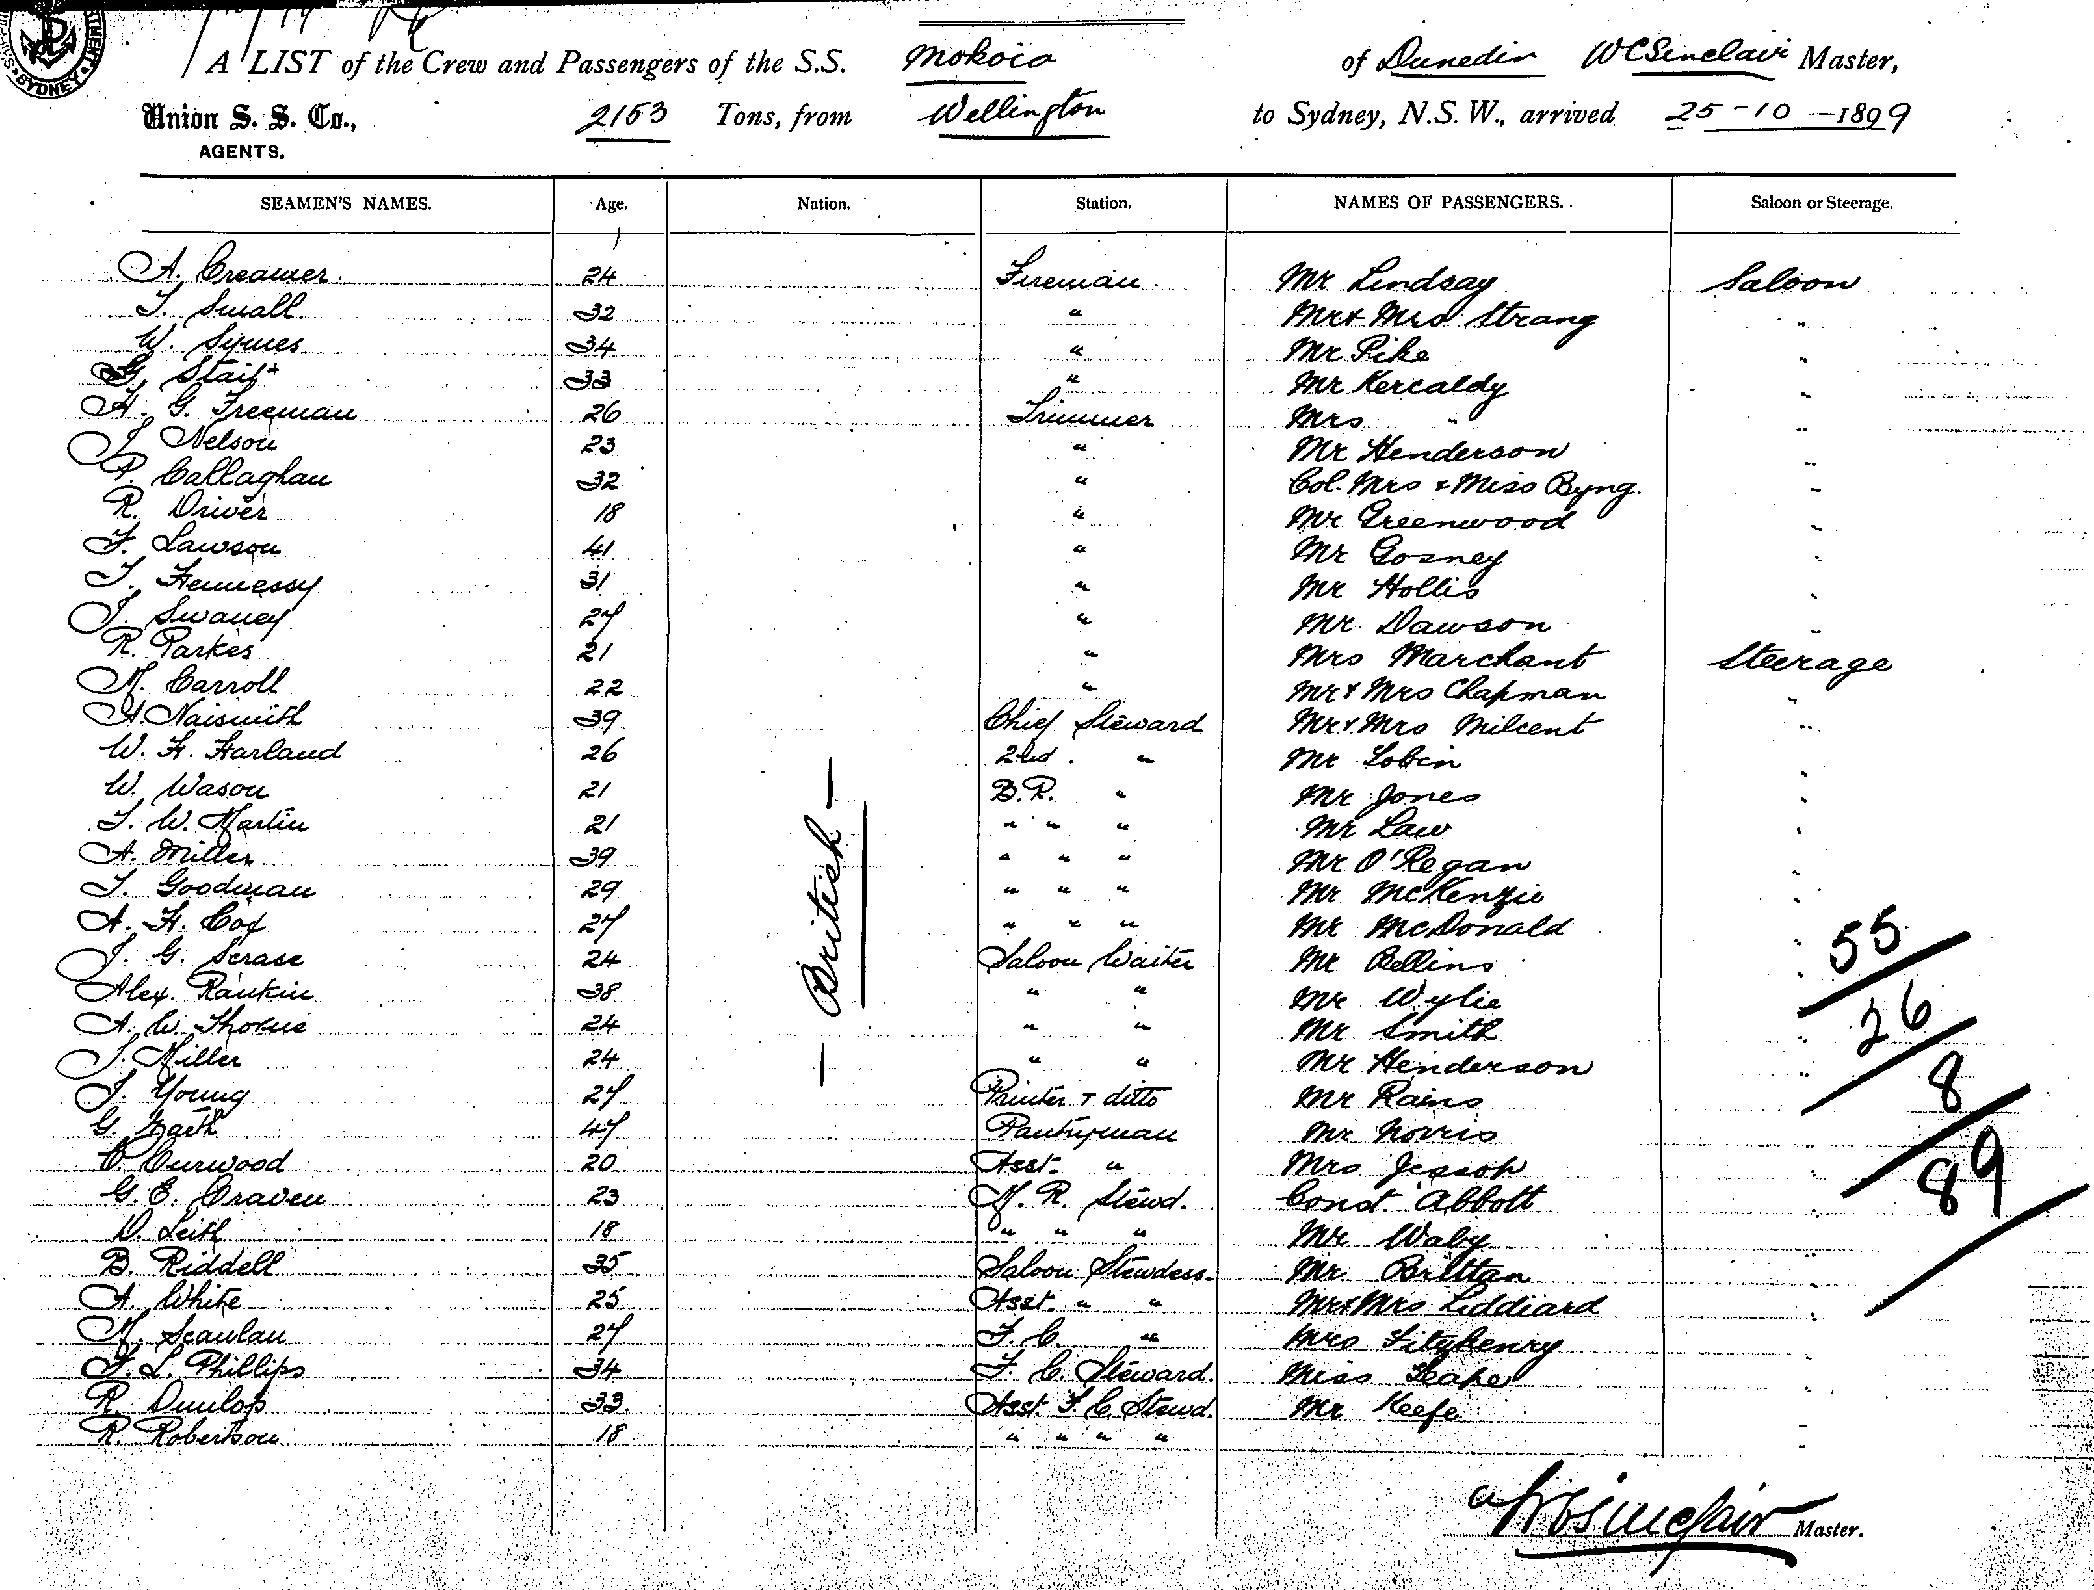 A LIST of the Crew and Passengers of the S.S. Mokoia of Dunedin WCSinclair Master,
Union S. S. Co., 2153 Tons, from Wellington to Sydney, N.S.W., arrived 25-10-1899
AGENTS.
SEAMEN'S NAMES. Age. Nation. Station. NAMES OF PASSENGERS. Saloon or Steerage.
A. Creamer 24 Fireman Mr Lindsay Saloon
T. Small 32 " Mr & Mrs Strang "
W. Symes 34 " Mr Pike "
G. Stait 33 " Mr Kercaldy "
H. G. Freeman 26 Trimmer Mrs " "
J. Nelson 23 " Mr Henderson "
P. Callaghan 32 " Col. Mrs & Miss Byng "
R. Driver 18 " Mr Greenwood "
F. Lawson 41 " Mr Gosney "
T. Hennessy 31 " Mr Hollis "
J. Swaney 27 " Mr Dawson "
R. Parkes 21 " Mrs Marchant Steerage
M. Carroll 22 " Mr & Mrs Chapman "
A. Naismith 39 Chief Steward Mr & Mrs Milcent "
W. H. Harland 26 2nd " Mr Tobin "
W. Wason 21 B.R. " Mr Jones "
T. W. Martin 21 " " " Mr Law "
A. Miller 39 " " " Mr O'Regan "
T. Goodman 29 " " " Mr McKenzie "
A. H. Cox 27 " " " Mr McDonald "
J. G. Scrase 24 Saloon Waiter Mr Bellins "
Alex. Rankin 38 " " Mr Wylie "
A. W. Thorne 24 " " Mr Smith "
J. Miller 24 " " Mr Henderson "
J. Young 27 Printer & ditto Mr Rains "
G. Garth 47 Pantryman Mr Norris "
C. Curwood 20 Asst. " Mrs Jessop "
G. E. Craven 23 M. R. Stewd. Const. Abbott "
D. Leith 18 " " " Mr Waby "
B. Riddell 35 Saloon Stewdess. Mr Brittan "
A. White 25 Asst. " " Mr & Mrs Liddiard "
M. Scanlan 27 F. C. " Mrs Fitzhenry "
F. L. Phillips 34 F. C. Steward. Miss "
R. Dunlop 33 Asst. F. C. Stewd. Mr Keefe "
R. Robertson 18 " " " " "
- British -
55
26
8
89
WCSinclair Master.